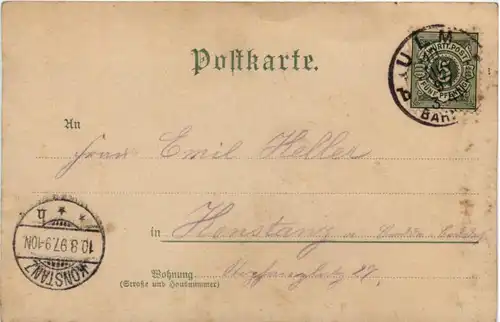 ULM
K. WÜRTT. POST
5
FÜNF PFENNIG
BAH
Postkarte.
An
Herrn Emil Heller
in Konstanz a
Wohnung Stephansplatz 27.
(Straße und Hausnummer)
KONSTANZ
10.8.97.9-10N.